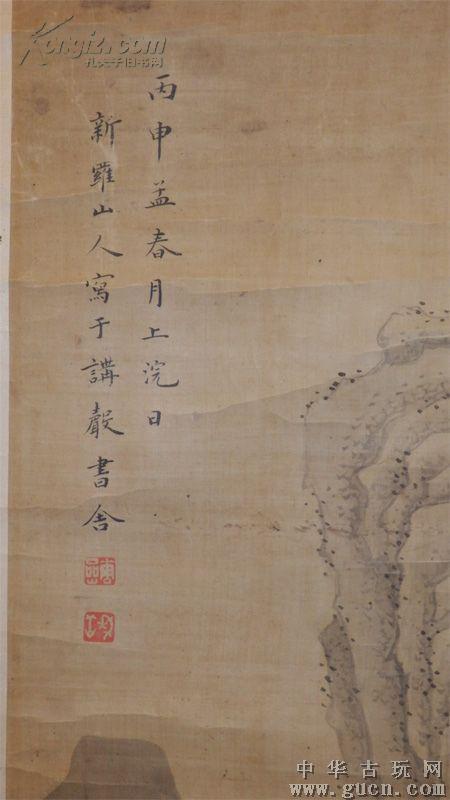 Kongfz.com
孔夫子旧书网
丙申孟春月上浣日
新羅山人寫于講聲書舍
中华古玩网
www.gucn.com